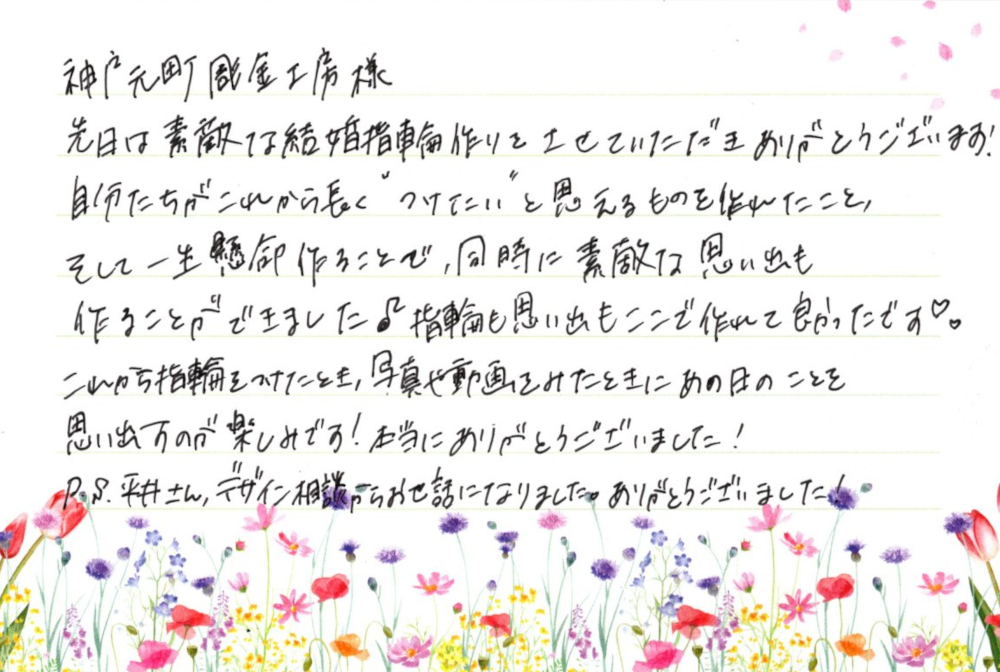 神戸元町彫金工房様
先日は素敵な結婚指輪作りをさせていただきありがとうございます!
自分たちがこれから長く"つけたい"と思えるものを作れたこと,
そして一生懸命作ることで,同時に素敵な思い出も
作ることができました♪指輪も思い出もここで作れて良かったです♡♡
これから指輪をつけたとき,写真や動画をみたときにあの日のことを
思い出すのが楽しみです!本当にありがとうございました!
P.S.平井さん,デザイン相談からお世話になりました。ありがとうございました!